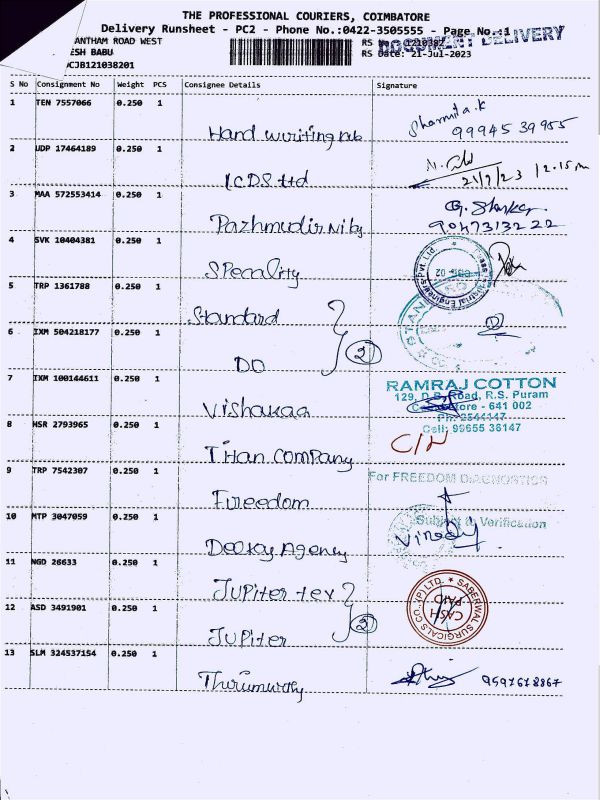 THE PROFESSIONAL COURIERS, COIMBATORE
Delivery Runsheet - PC2 - Phone No.:0422-3505555 - Page No.:1
DOCUMENT DELIVERY
ANTHAM ROAD WEST
ESH BABU
CJB121038201
RS Date: 21-Jul-2023
S No Consignment No Weight PCS Consignee Details Signature
1 TEN 7557066 0.250 1
Hand writing hub
Sharmila.K
99945 39955
2 UDP 17464189 0.250 1
ICDS ltd
21/7/23 12.15 pm
3 MAA 572553414 0.250 1
Pazhmudir Niby
G. Shankar
9047313222
4 SVK 10404381 0.250 1
SPecality
5 TRP 1361788 0.250 1
Standard
6 IXM 504218177 0.250 1
DO
2
7 IXM 100144611 0.250 1
Vishakaa
RAMRAJ COTTON
129, D.B. Road, R.S. Puram
Coimbatore - 641 002
Ph: 2544147
Cell: 99655 38147
8 HSR 2793965 0.250 1
Titan Company
C/N
9 TRP 7542307 0.250 1
Freedom
For FREEDOM DIAGNOSTICS
10 MTP 3047059 0.250 1
Deekay Agency
Subject to Verification
Vinoth
11 NGD 26633 0.250 1
Jupiter tex
12 ASD 3491901 0.250 1
Jupiter
2
SABERWAL SURGICALS CO., (P) LTD.
CASH
PAID
13 SLM 324537154 0.250 1
9597678867